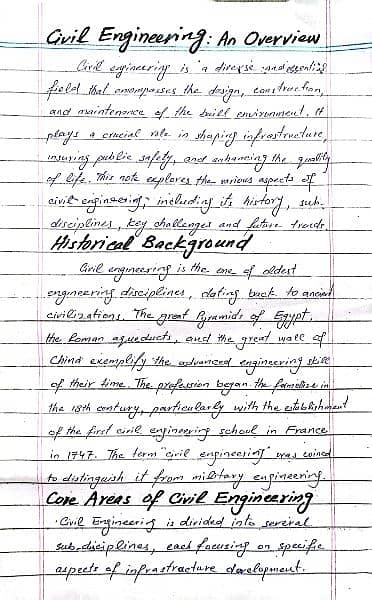 Civil Engineering: An Overview
Civil engineering is a diverse and essential
field that encompasses the design, construction,
and maintenance of the built environment. It
plays a crucial role in shaping infrastructure,
insuring public safety, and enhancing the quality
of life. This note explores the various aspects of
civil engineering, including its history, sub-
disciplines, key challenges and future trends.
Historical Background
Civil engineering is the one of oldest
engineering disciplines, dating back to ancient
civilizations. The great Pyramids of Egypt,
the Roman aqueducts, and the great wall of
China exemplify the advanced engineering skill
of their time. The profession began the in
the 18th century, particularly with the establishment
of the first civil engineering school in France
in 1747. The term "civil engineering" was coined
to distinguish it from military engineering.
Core Areas of Civil Engineering
Civil Engineering is divided into several
sub-disciplines, each focusing on specific
aspects of infrastructure development.